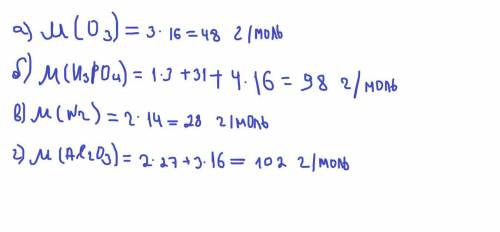 а) M(O3) = 3·16=48 г/моль
б) M(H3PO4) = 1·3+31+4·16 = 98 г/моль
в) M(N2) = 2·14 = 28 г/моль
г) M(Al2O3) = 2·27+3·16 = 102 г/моль